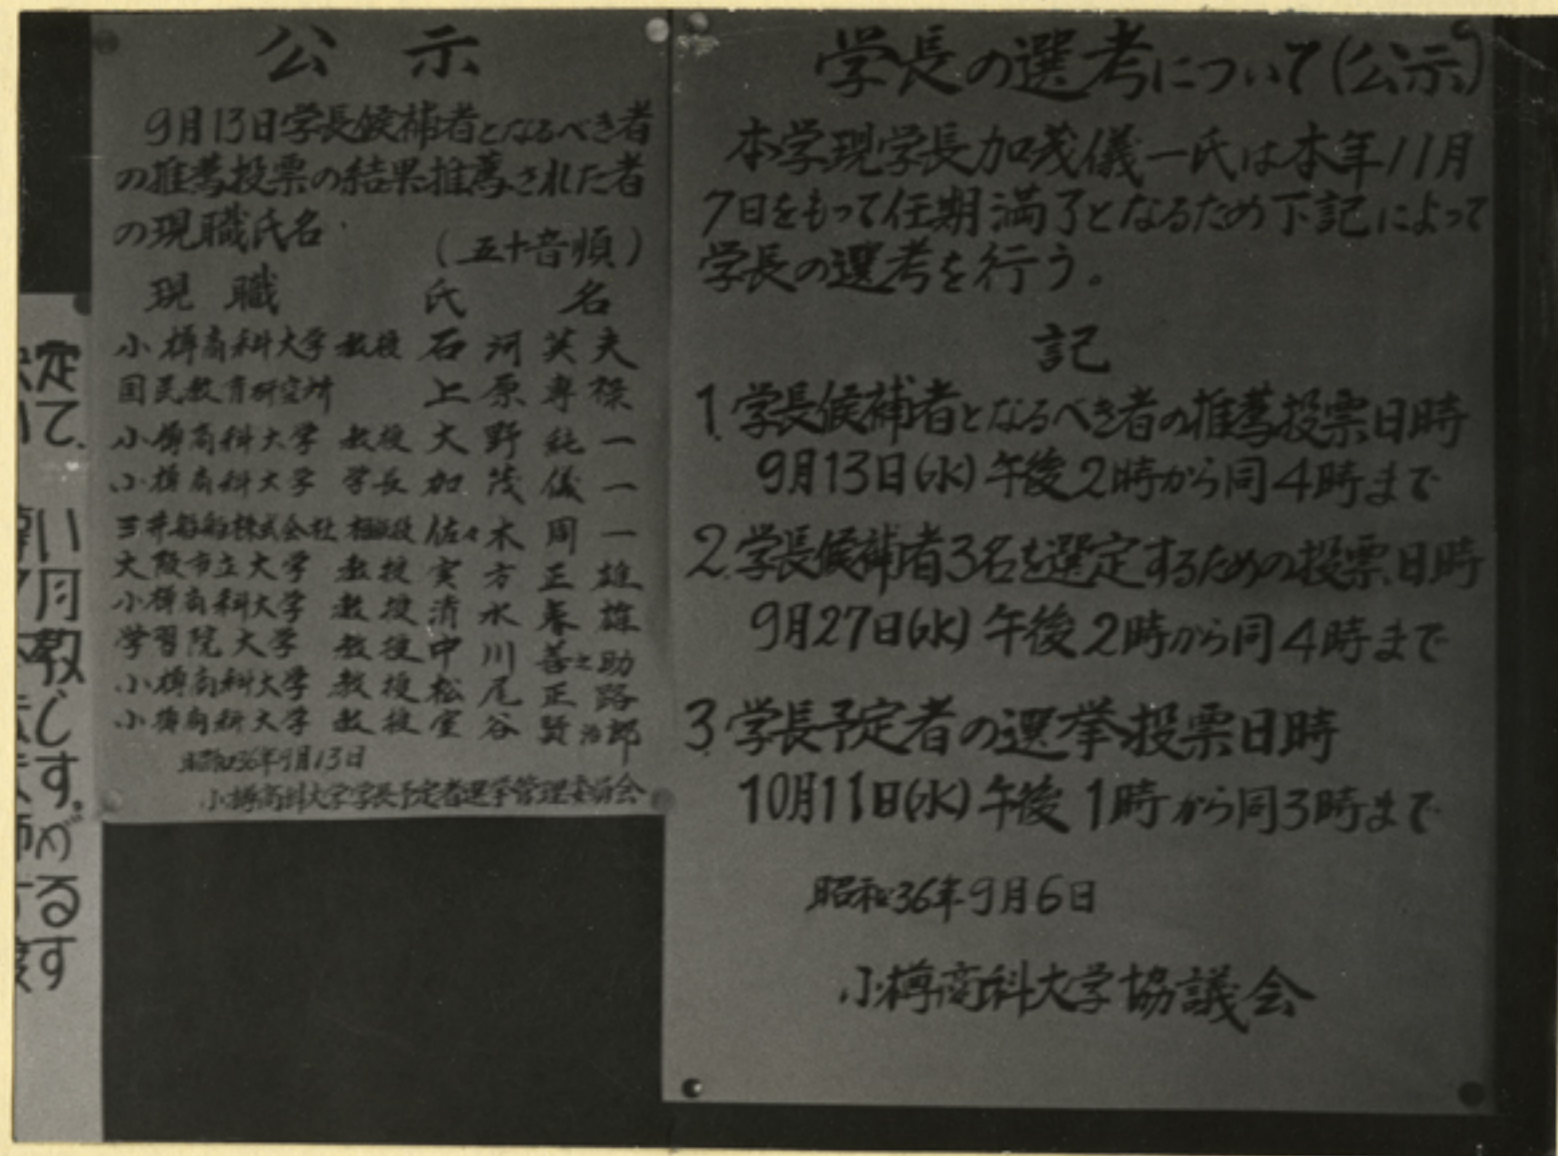 公示
9月13日学長候補者となるべき者
の推薦投票の結果推薦された者
の現職氏名
(五十音順)
現職 氏名
小樽商科大学 教授 石河英夫
国民教育研究所 上原専祿
小樽商科大学 教授 大野純一
小樽商科大学 学長 加茂儀一
三井船舶株式会社 相談役 佐々木周一
大阪市立大学 教授 実方正雄
小樽商科大学 教授 清水春雄
学習院大学 教授 中川善之助
小樽商科大学 教授 松尾正路
小樽商科大学 教授 室谷賢治郎
昭和36年9月13日
小樽商科大学学長予定者選挙管理委員会
学長の選考について(公示)
本学現学長加茂儀一氏は本年11月
7日をもって任期満了となるため下記によって
学長の選考を行う。
記
1.学長候補者となるべき者の推薦投票日時
9月13日(水)午後2時から同4時まで
2.学長候補者3名を選定するための投票日時
9月27日(水)午後2時から同4時まで
3.学長予定者の選挙投票日時
10月11日(水)午後1時から同3時まで
昭和36年9月6日
小樽商科大学協議会